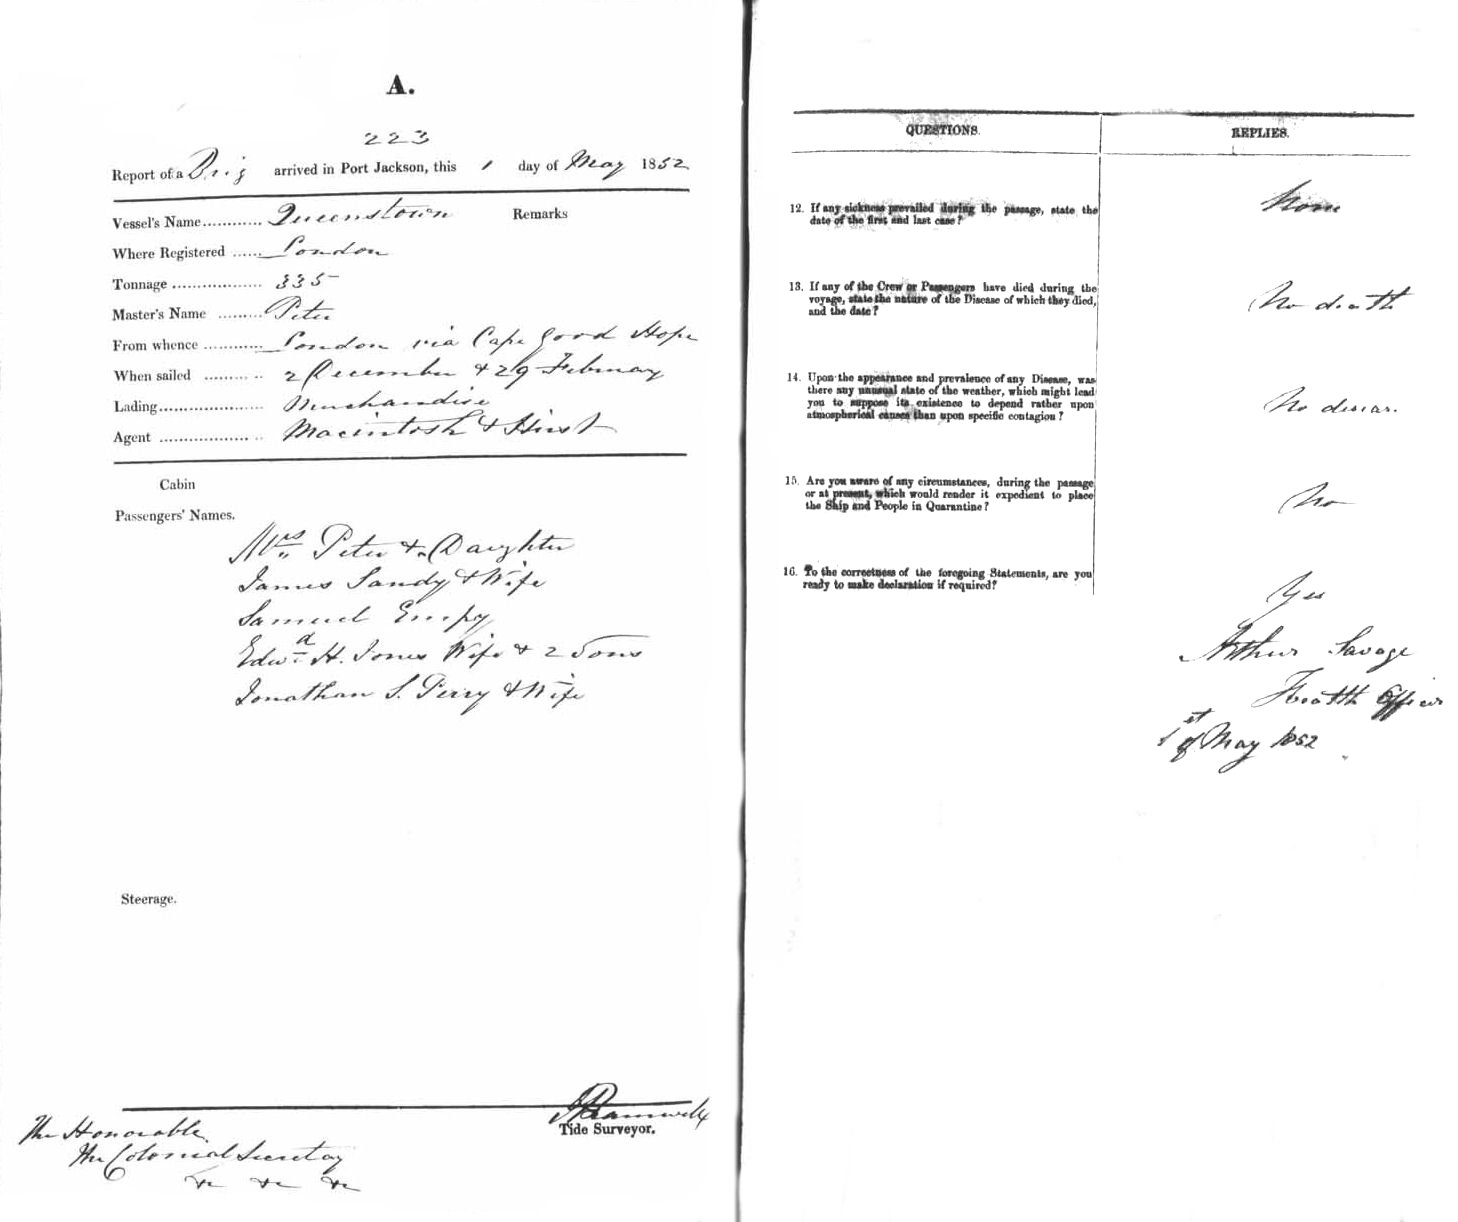 A.
223
Report of a Brig arrived in Port Jackson, this 1 day of May 1852
Vessel's Name............ Queenstown Remarks
Where Registered ...... London
Tonnage .................. 335
Master's Name ......... Peter
From whence ............ London via Cape Good Hope
When sailed ......... .. 2 December & 29 February
Lading..................... Merchandise
Agent .................. .. Macintosh & Hirst
Cabin
Passengers' Names.
Mrs Peter & Daughter
James Sandy & Wife
Samuel Empy
Edwd H. Jones Wife & 2 Sons
Jonathan S. Perry & Wife
Steerage.
Tide Surveyor.
The Honorable
The Colonial Secretary
&c &c &c
QUESTIONS. REPLIES.
12. If any sickness prevailed during the passage, state the
date of the first and last case? None
13. If any of the Crew or Passengers have died during the
voyage, state the nature of the Disease of which they died,
and the date? No death
14. Upon the appearance and prevalence of any Disease, was
there any unusual state of the weather, which might lead
you to suppose its existence to depend rather upon
atmospherical causes than upon specific contagion? No diseas.
15. Are you aware of any circumstances, during the passage
or at present, which would render it expedient to place
the Ship and People in Quarantine? No
16. To the correctness of the foregoing Statements, are you
ready to make declaration if required? Yes
Arthur Savage
Health Officer
1st of May 1852